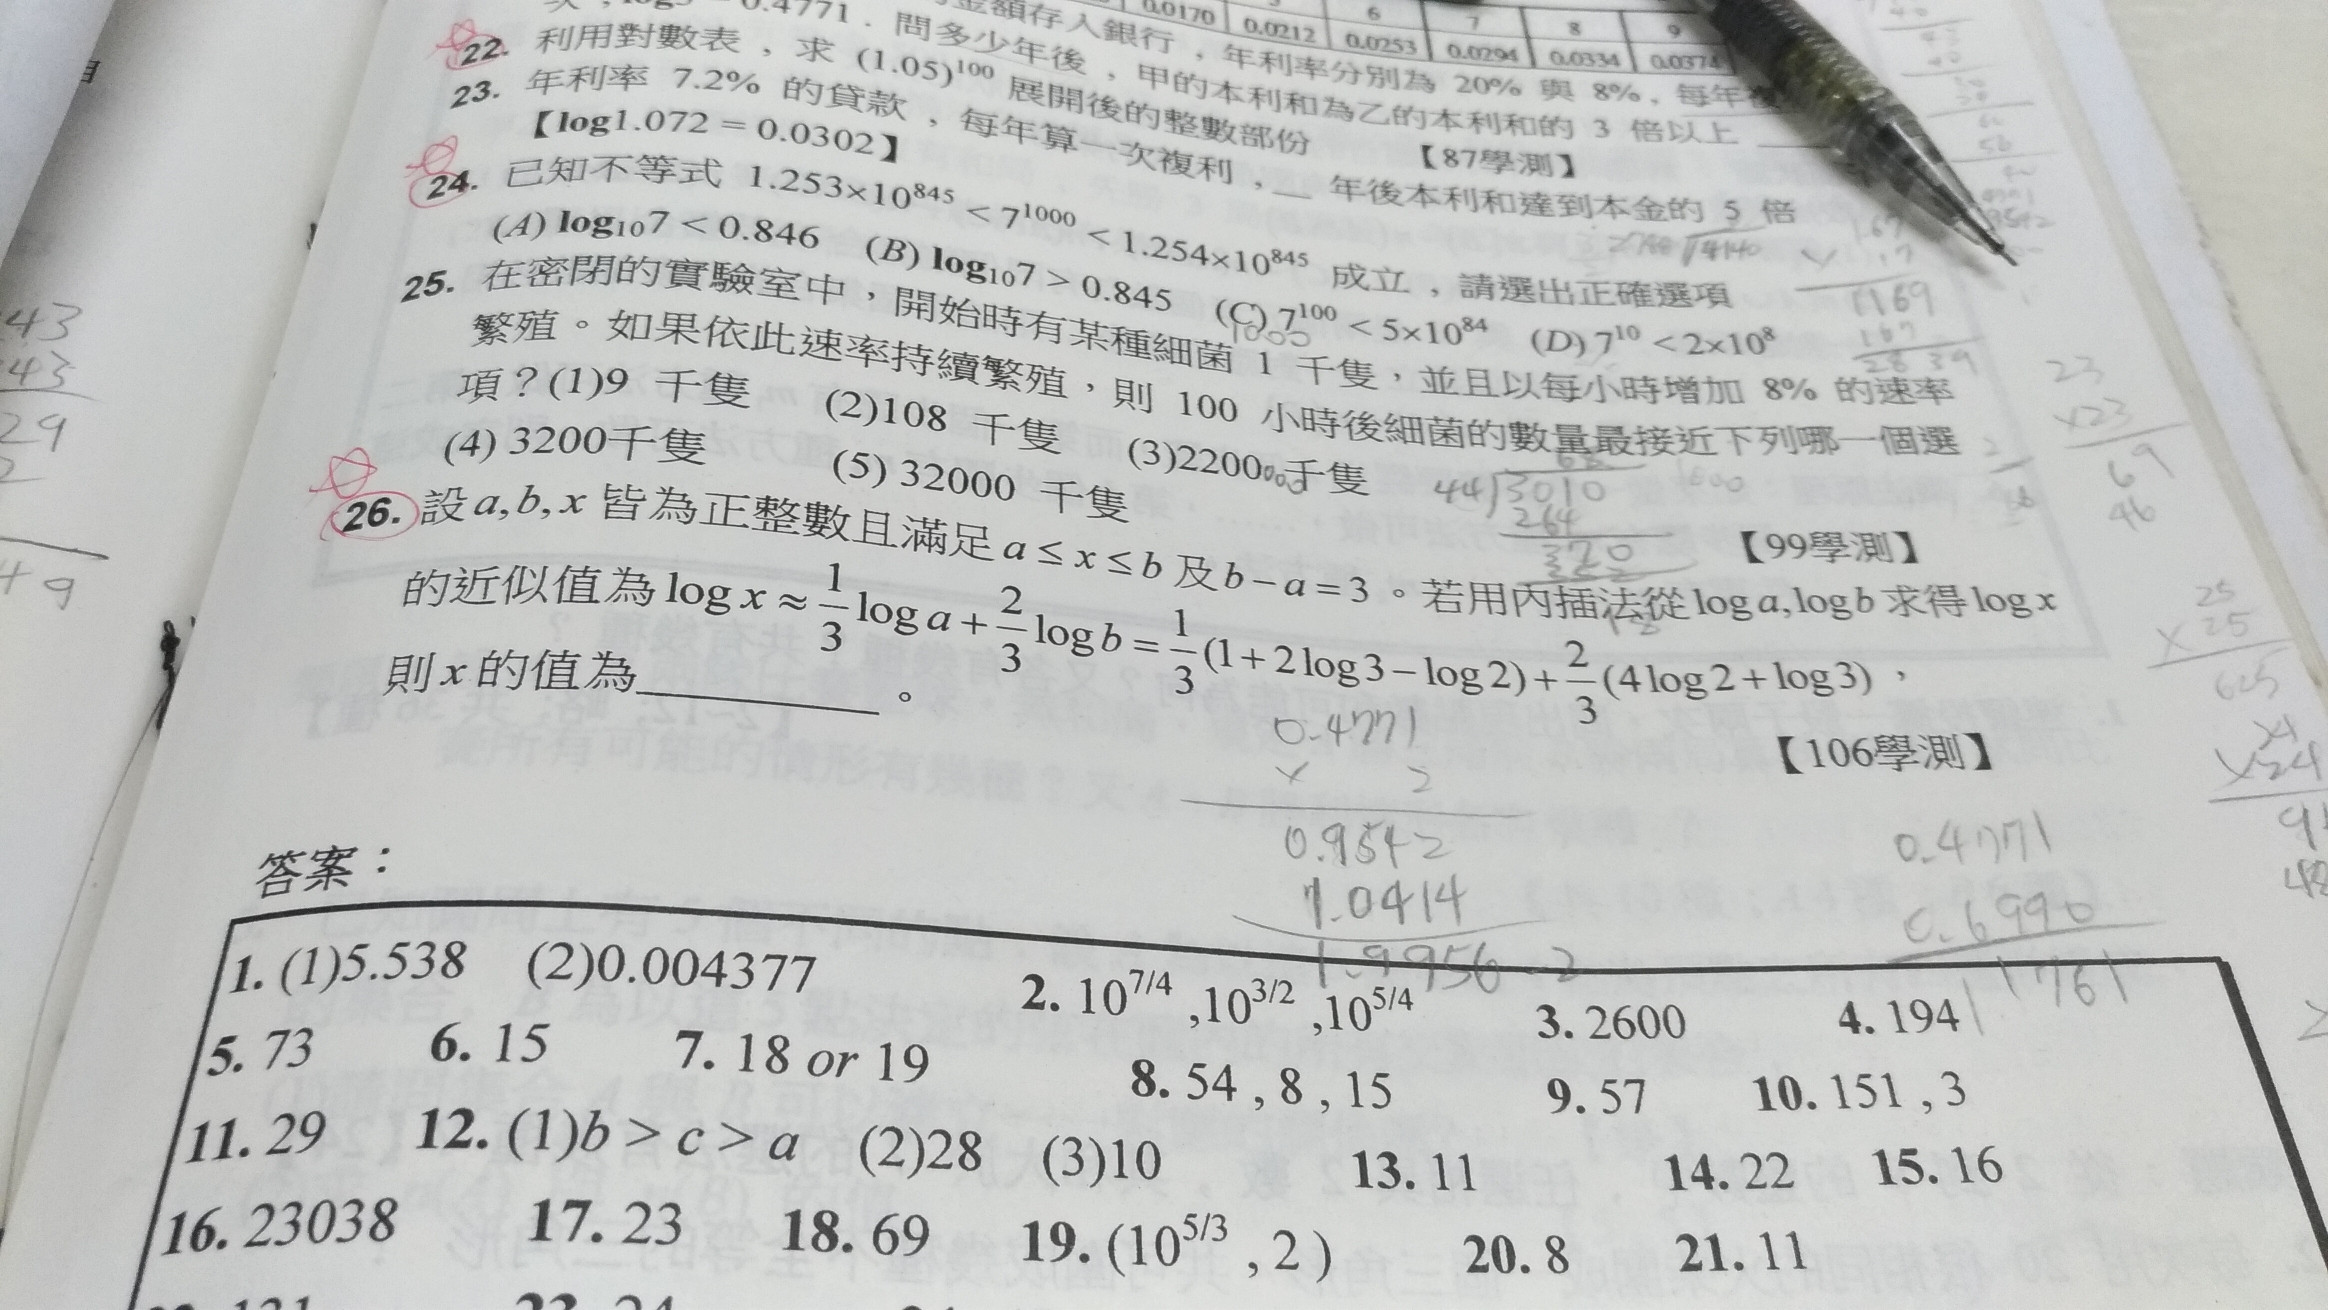 0.0170 0.0212 0.0253 0.0294 0.0334 0.0374
6 7 8 9
金額存入銀行，年利率分別為 20% 與 8%，每年
0.4771．問多少年後，甲的本利和為乙的本利和的 3 倍以上
22. 利用對數表，求 (1.05)¹⁰⁰ 展開後的整數部份
【87學測】
23. 年利率 7.2% 的貸款，每年算一次複利，__ 年後本利和達到本金的 5 倍
【log1.072 = 0.0302】
24. 已知不等式 1.253×10⁸⁴⁵ < 7¹⁰⁰⁰ < 1.254×10⁸⁴⁵ 成立，請選出正確選項
(A) log₁₀7 < 0.846 (B) log₁₀7 > 0.845 (C) 7¹⁰⁰ < 5×10⁸⁴ (D) 7¹⁰ < 2×10⁸
25. 在密閉的實驗室中，開始時有某種細菌 1 千隻，並且以每小時增加 8% 的速率
繁殖。如果依此速率持續繁殖，則 100 小時後細菌的數量最接近下列哪一個選
項？(1)9 千隻 (2)108 千隻 (3)2200千隻
(4) 3200千隻 (5) 32000 千隻
【99學測】
26. 設 a,b,x 皆為正整數且滿足 a ≤ x ≤ b 及 b − a = 3 。若用內插法從 log a, log b 求得 log x
的近似值為 log x ≈ 1/3 log a + 2/3 log b = 1/3 (1+2log3−log2) + 2/3 (4log2+log3)，
則 x 的值為________。
【106學測】
1000
1169
167
23
×23
69
46
44)3010
264
25
×25
625
43
43
29
49
0.4771
× 2
0.9542
1.0414
1.9956-2
0.4771
0.6990
11761
答案：
1. (1)5.538 (2)0.004377 2. 10^7/4 ,10^3/2 ,10^5/4 3. 2600 4. 194
5. 73 6. 15 7. 18 or 19 8. 54 , 8 , 15 9. 57 10. 151 , 3
11. 29 12. (1)b > c > a (2)28 (3)10 13. 11 14. 22 15. 16
16. 23038 17. 23 18. 69 19. (10^5/3 , 2 ) 20. 8 21. 11